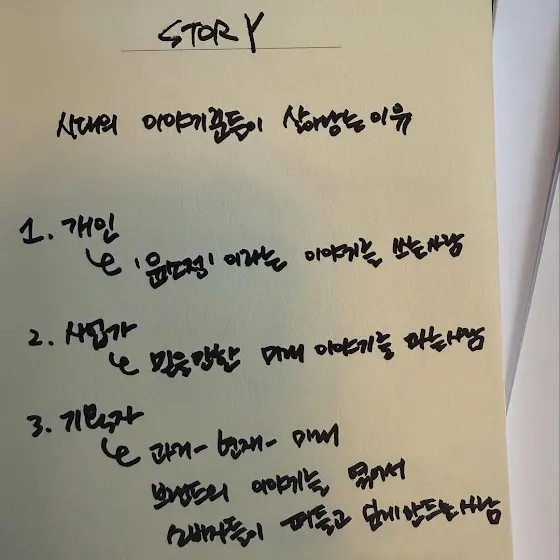 STORY
시대의 이야기꾼들이 살아남는 이유
1. 개인
'윤소정' 이라는 이야기를 쓰는 사람
2. 사업가
믿을만한 미래 이야기를 파는 사람
3. 기획자
과거 - 현재 - 미래
브랜드의 이야기를 엮어서
소비자들이 떠들고 싶게 만드는 사람